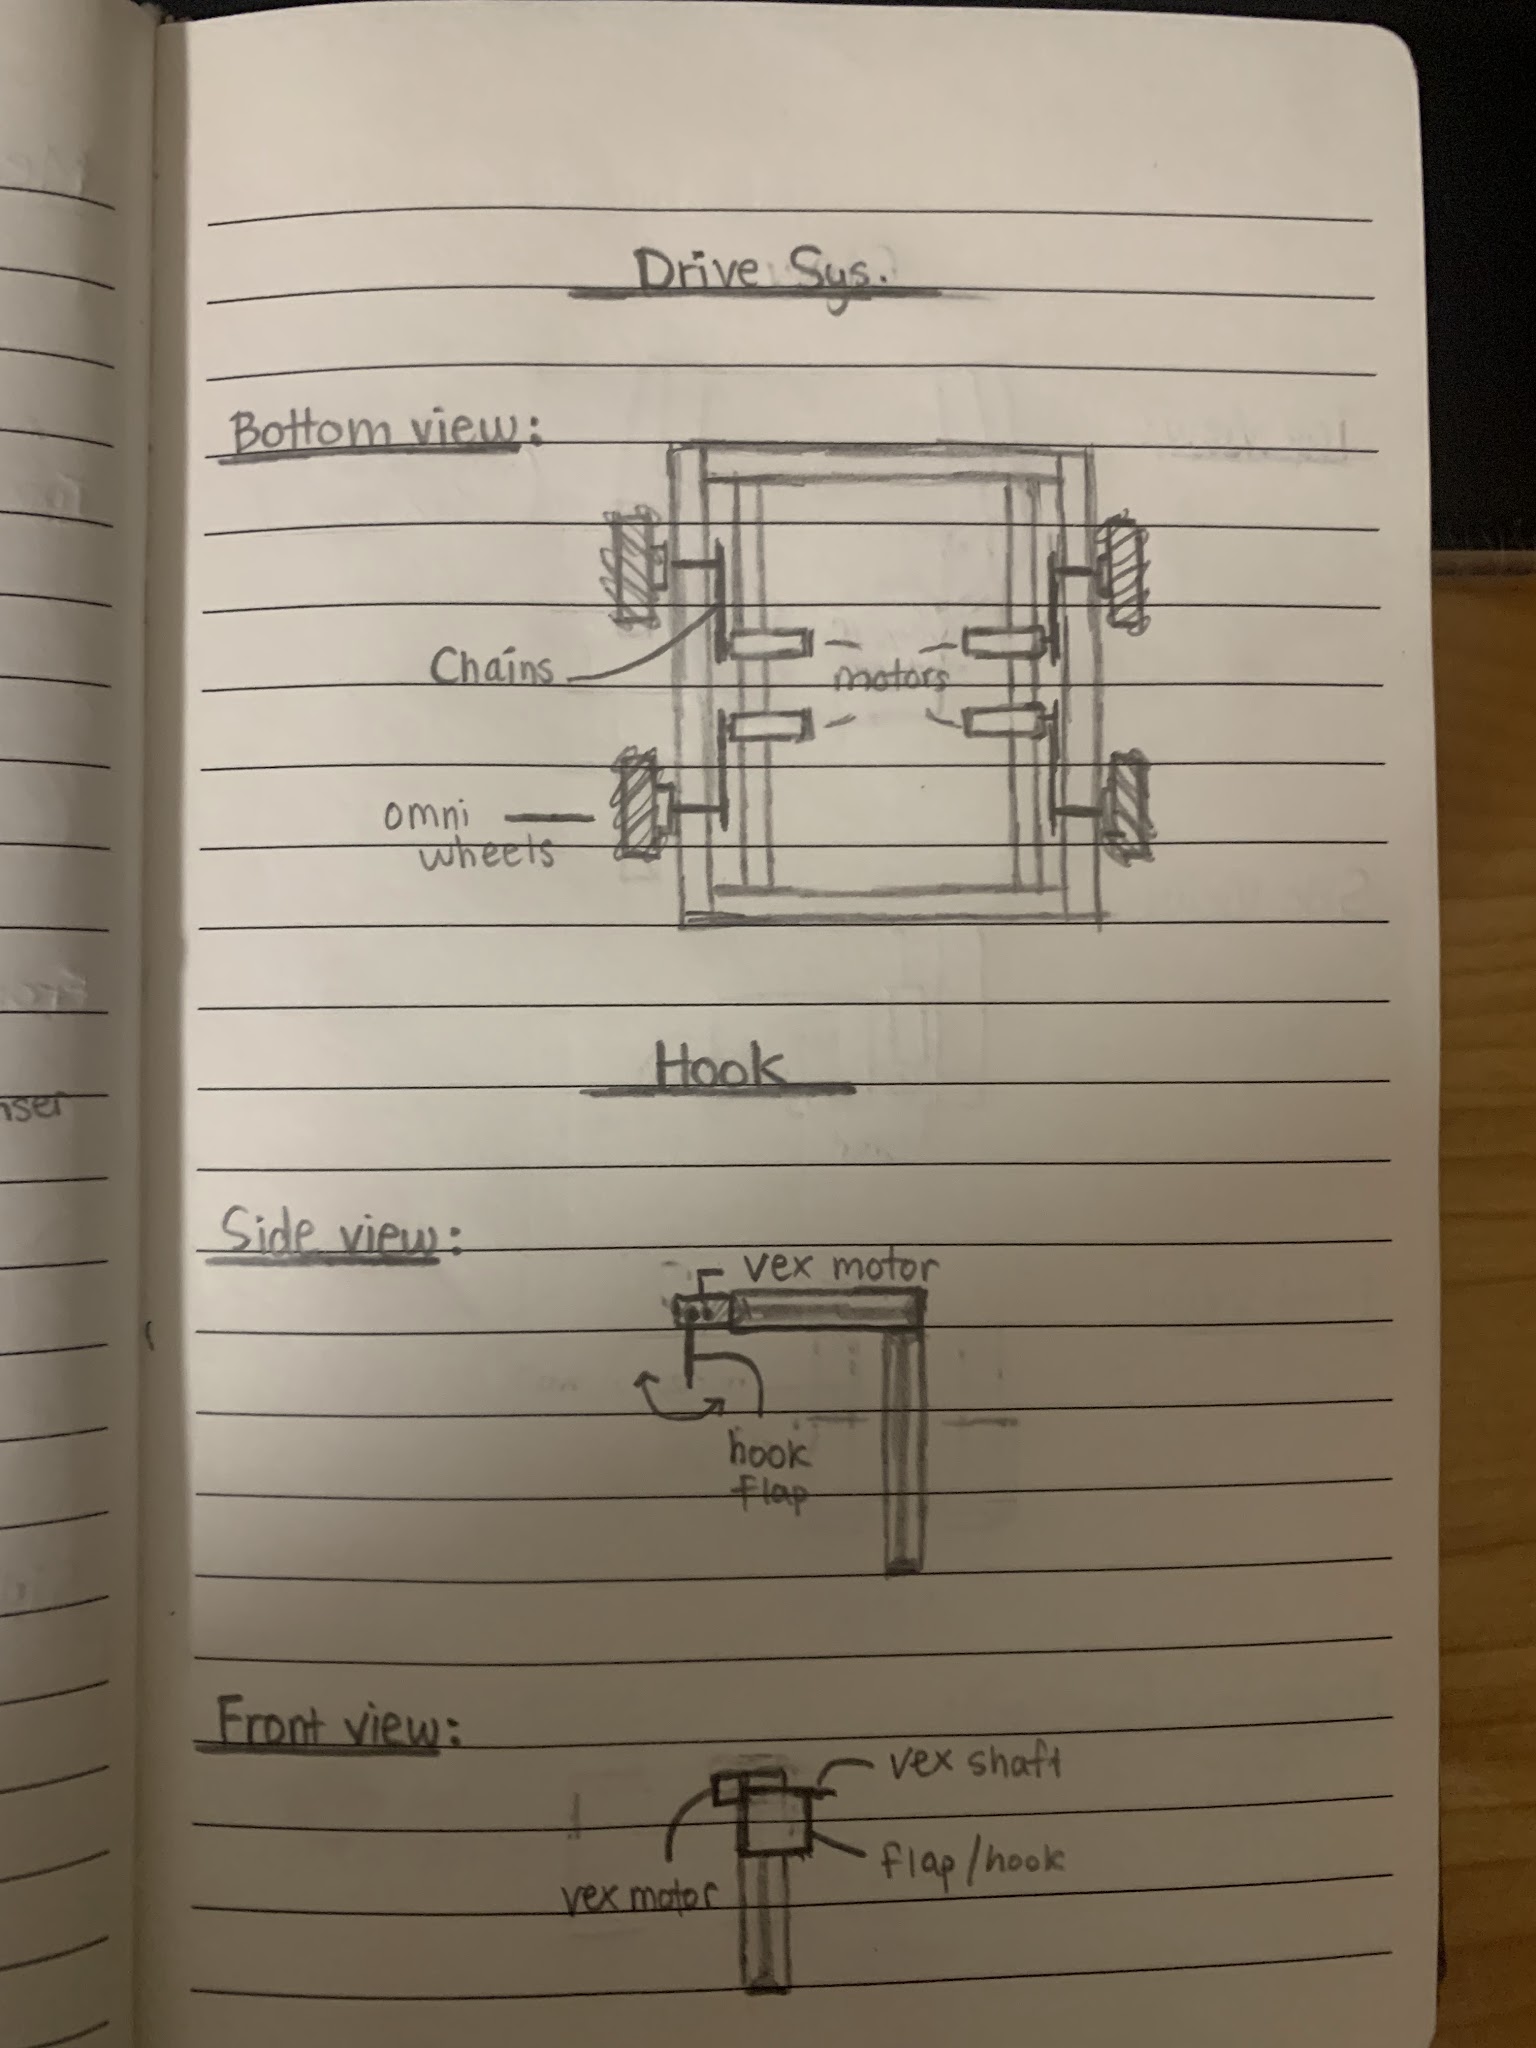 Drive Sys.
Bottom view:
Chains
motors
omni
wheels
Hook
nser
Side view:
vex motor
hook
flap
Front view:
vex shaft
flap/hook
vex motor